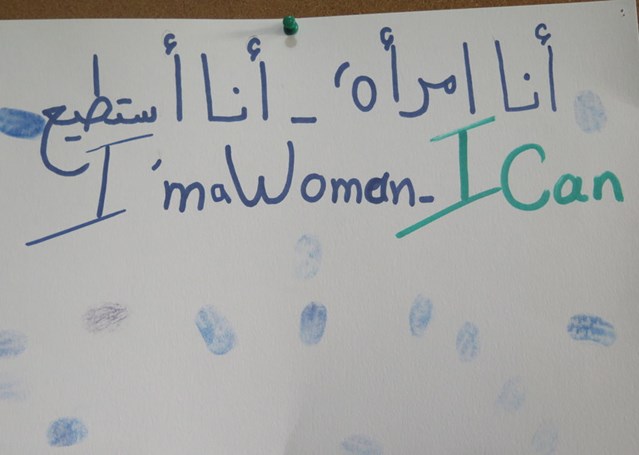 أنا امرأه، _ أنا أستطيع
I'm a Woman_ I Can